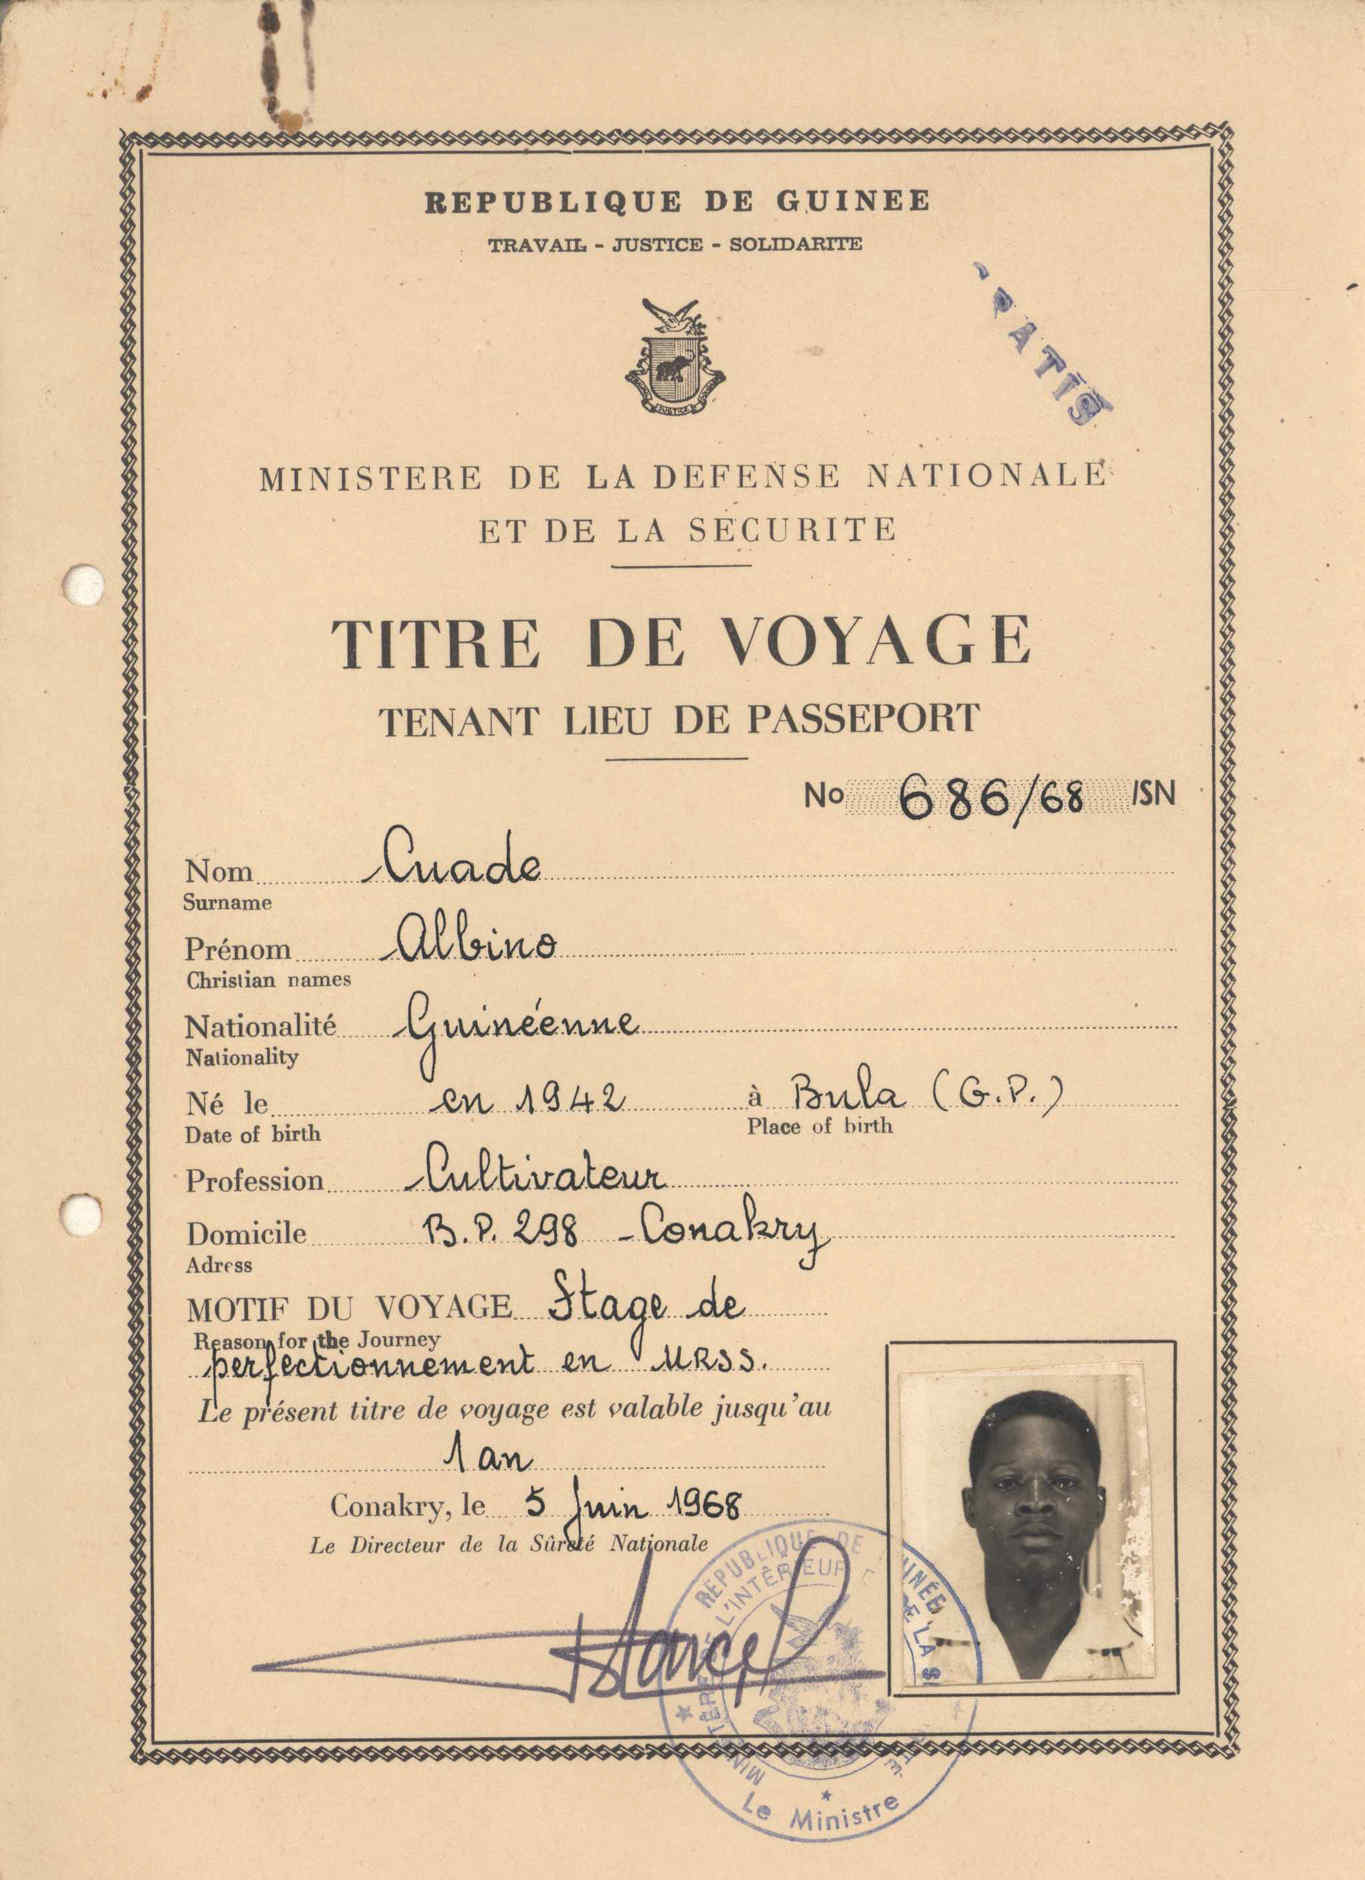 REPUBLIQUE DE GUINEE
TRAVAIL - JUSTICE - SOLIDARITE
GRATIS
MINISTERE DE LA DEFENSE NATIONALE
ET DE LA SECURITE
TITRE DE VOYAGE
TENANT LIEU DE PASSEPORT
No 686/68 /SN
Nom Cuade
Surname
Prénom Albino
Christian names
Nationalité Guinéenne
Nationality
Né le en 1942 à Bula (G.P.)
Date of birth Place of birth
Profession Cultivateur
Domicile B.P. 298 - Conakry
Adress
MOTIF DU VOYAGE Stage de
Reason for the Journey
perfectionnement en URSS.
Le présent titre de voyage est valable jusqu'au
1 an
Conakry, le 5 Juin 1968
Le Directeur de la Sûreté Nationale
REPUBLIQUE DE GUINÉE
L'INTÉRIEUR
DE LA
Le Ministre